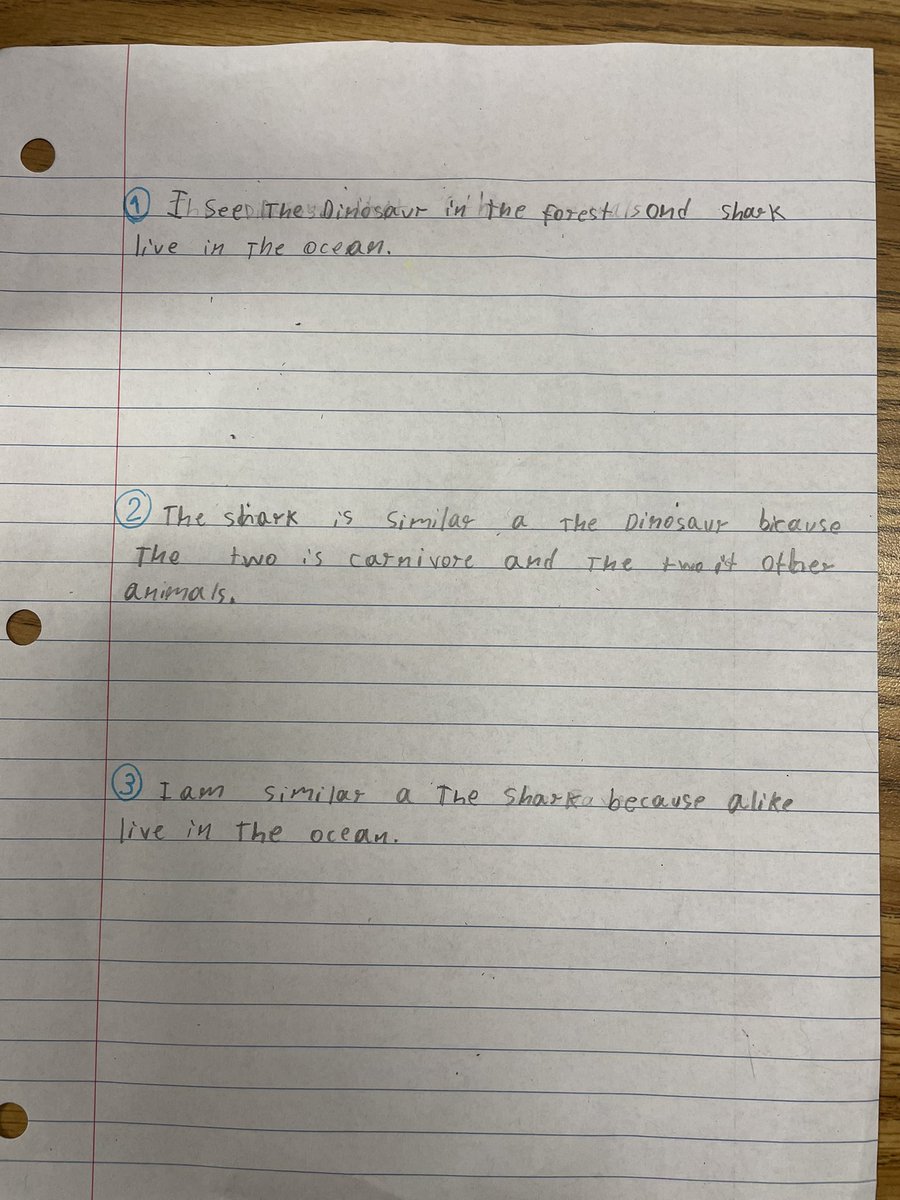 ① I See The Dinosaur in the forest and shark
live in The ocean.
② The shark is similar a The Dinosaur bicause
The two is carnivore and The two it other
animals.
③ I am similar a The Shark because alike
live in The ocean.